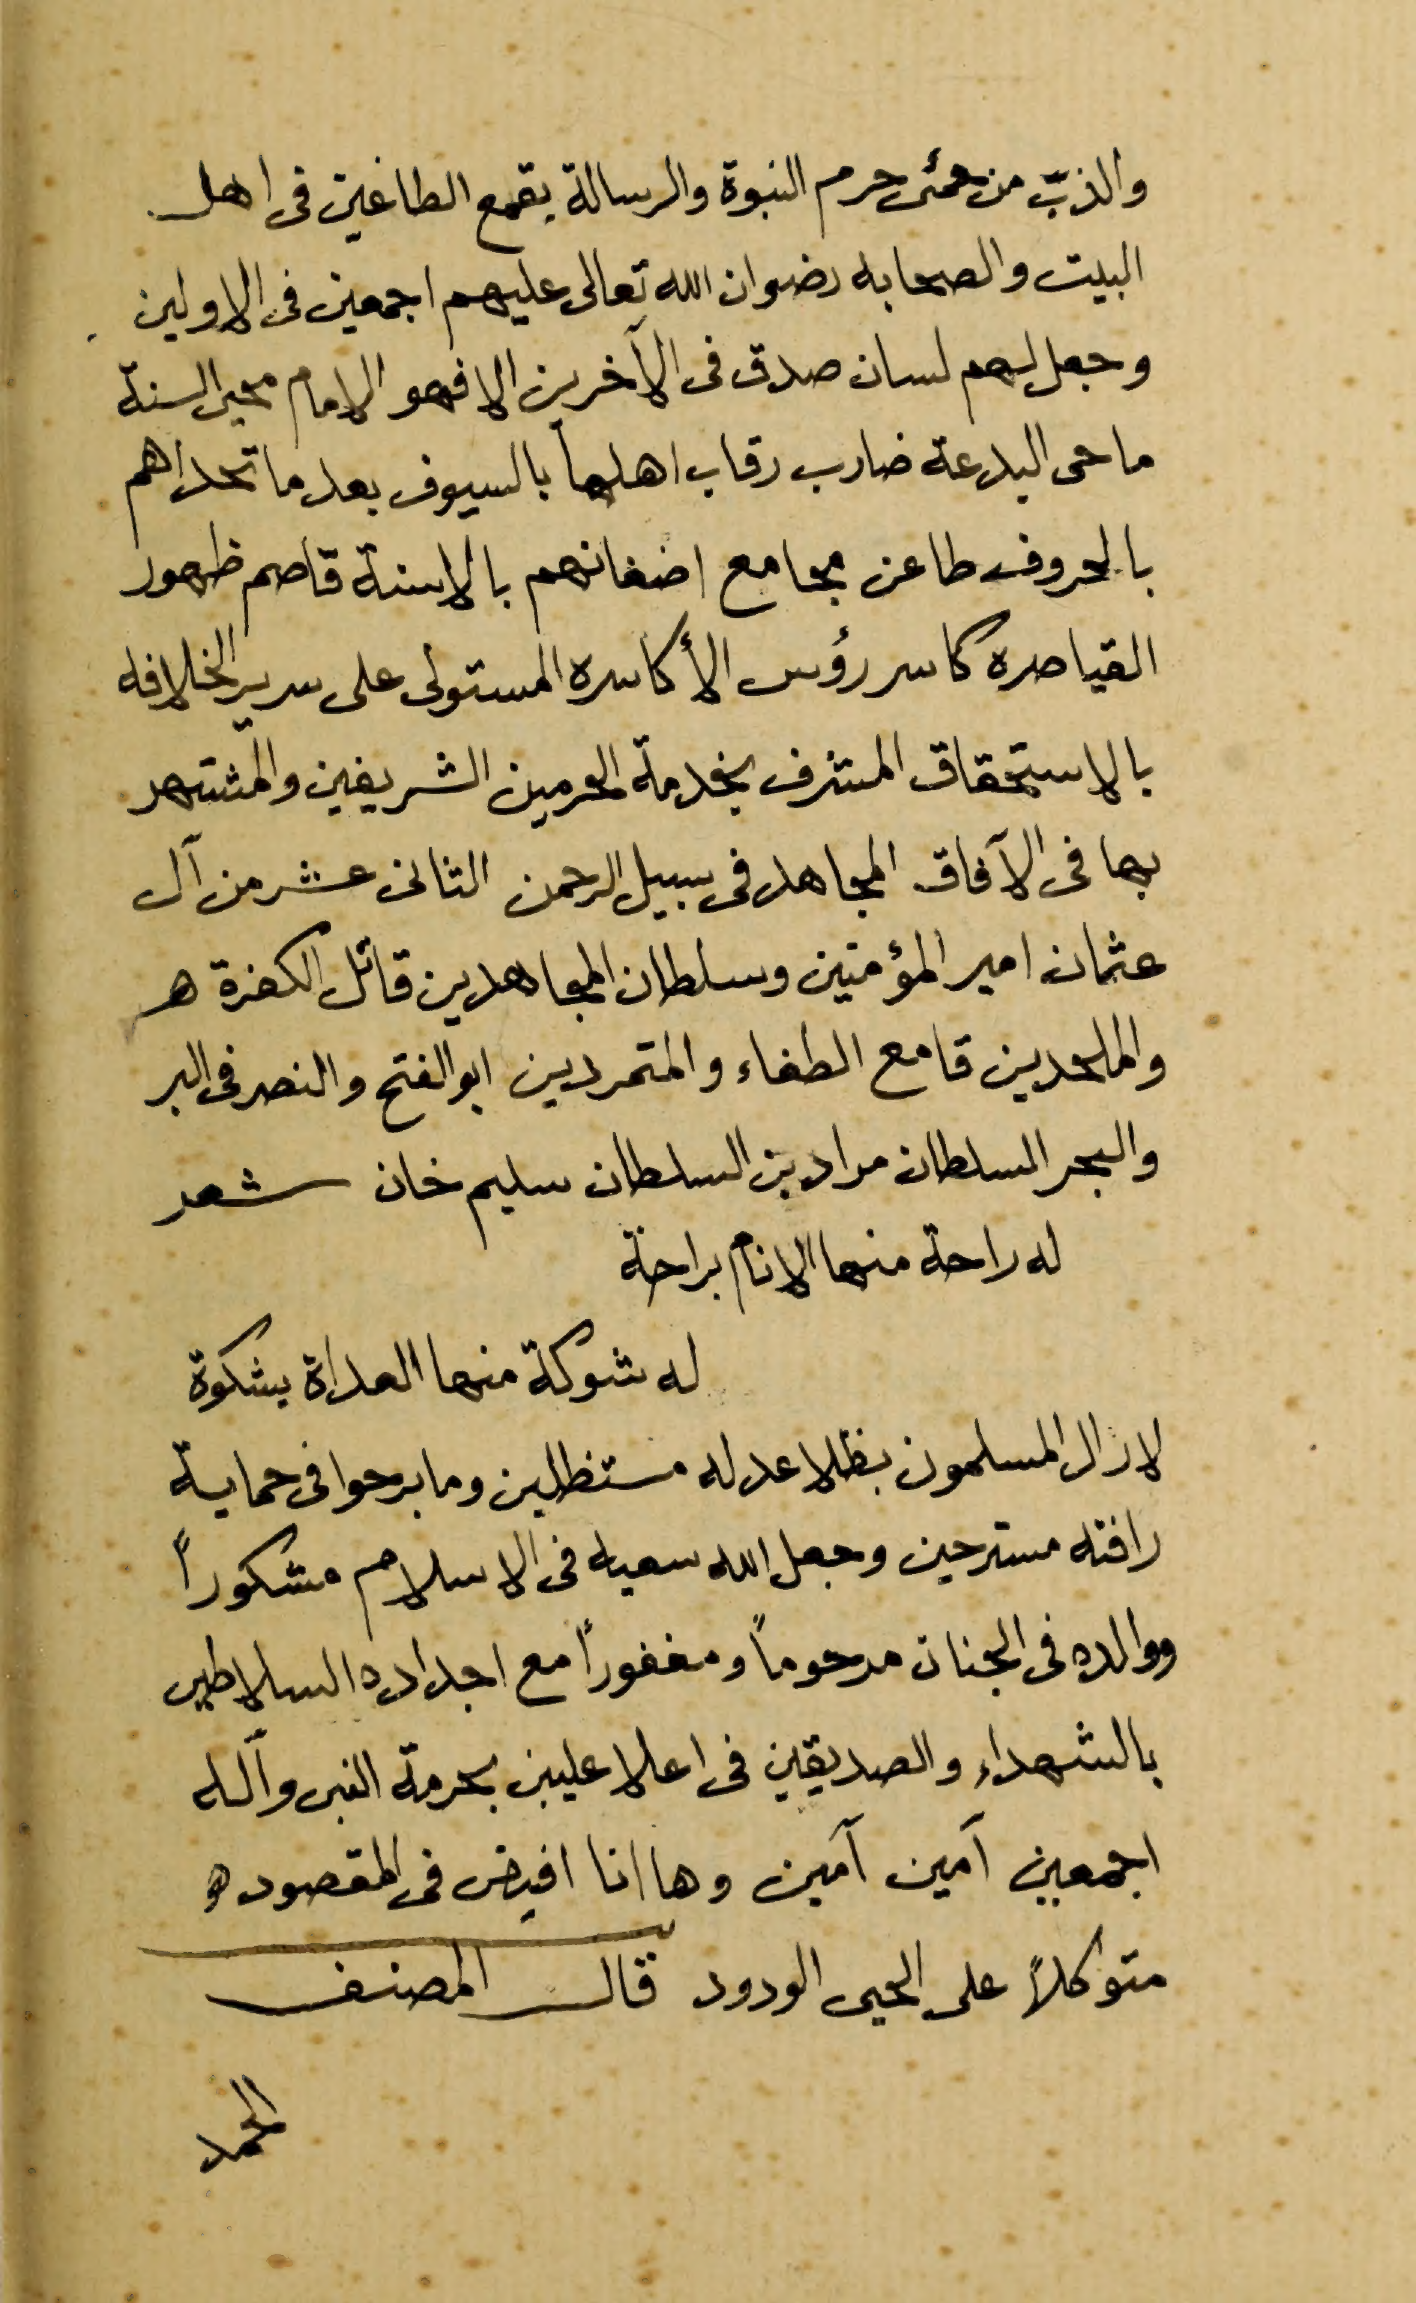 والذبّ من حمئ حرم النبوة والرسالة بقمع الطاغين فى اهل
البيت والصحابه رضوان الله تعالى عليهم اجمعين فى الاولين
وجعل لهم لسان صدق فى الآخرين الا فهو الامام محيى السنة
ماحى البدعة ضارب رقاب اهلها بالسيوف بعد ما تحداهم
بالحروف طاعن مجامع اضغانهم بالاسنة قاصم ظهور
القياصره كاسر رؤس الأكاسره المستولى على سرير الخلافه
بالاستحقاق المتشرف بخدمة الحرمين الشريفين والمشتهر
بها فى الآفاق المجاهد فى سبيل الرحمن الثانى عشر من آل
عثمان امير المؤمنين وسلطان المجاهدين قاتل الكفرة هـ
والملحدين قامع الطغاء والمتمردين ابو الفتح والنصر فى البر
والبحر السلطان مراد بن السلطان سليم خان شعر
له راحة منها الانام براحة
له شوكة منها العداة بشكوة
لازال المسلمون بظلا عدله مستظلين وما برحوا فى حماية
رافته مسترحين وجعل الله سعيه فى الاسلام مشكوراً
ووالده فى الجنان مرحوماً ومغفوراً مع اجداده السلاطين
بالشهداء والصديقين فى اعلا عليين بحرمة النبى وآله
اجمعين آمين آمين وها انا افيض فى المقصود هـ
متوكلاً على الحيى الودود قال المصنف
الحمد